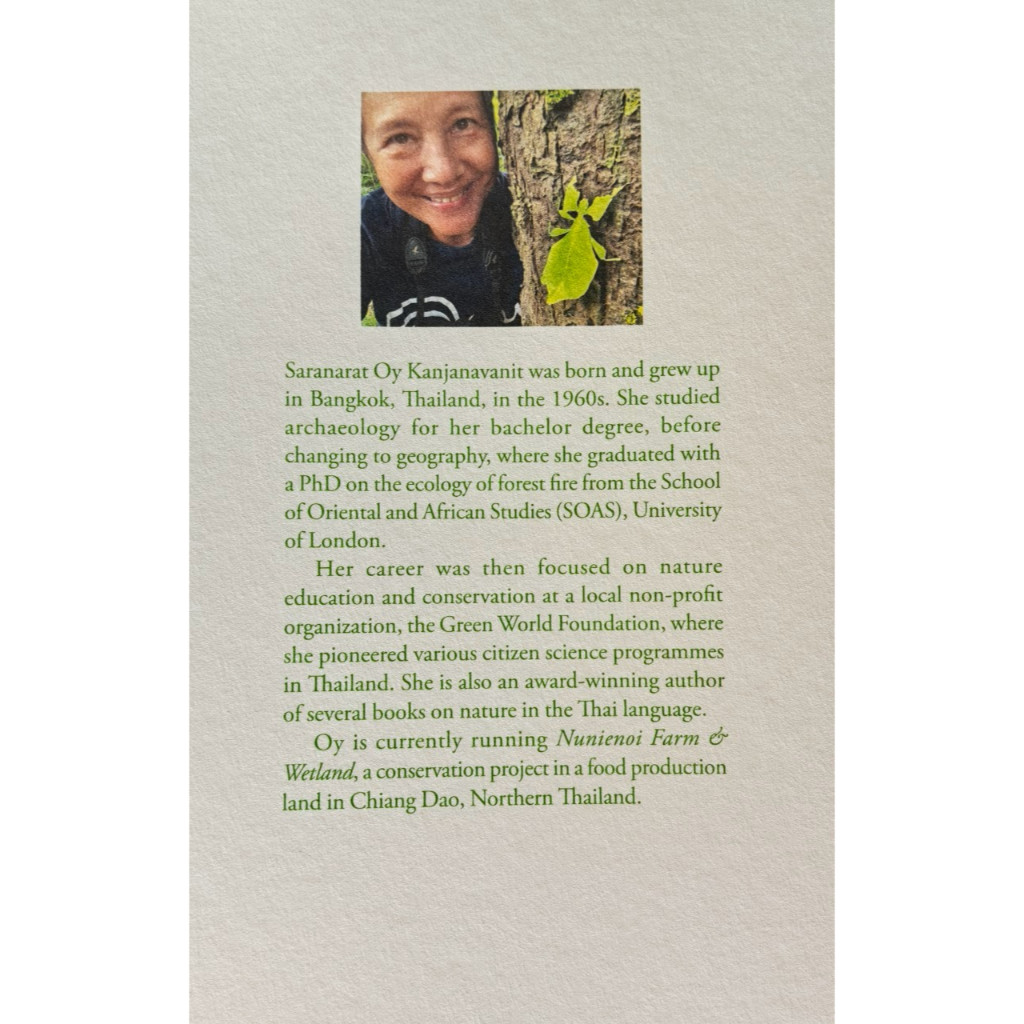 Saranarat Oy Kanjanavanit was born and grew up
in Bangkok, Thailand, in the 1960s. She studied
archaeology for her bachelor degree, before
changing to geography, where she graduated with
a PhD on the ecology of forest fire from the School
of Oriental and African Studies (SOAS), University
of London.
Her career was then focused on nature
education and conservation at a local non-profit
organization, the Green World Foundation, where
she pioneered various citizen science programmes
in Thailand. She is also an award-winning author
of several books on nature in the Thai language.
Oy is currently running Nunienoi Farm &
Wetland, a conservation project in a food production
land in Chiang Dao, Northern Thailand.